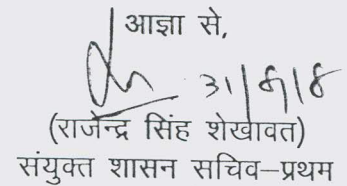 आज्ञा से,
31/8/18
(राजेन्द्र सिंह शेखावत)
संयुक्त शासन सचिव–प्रथम